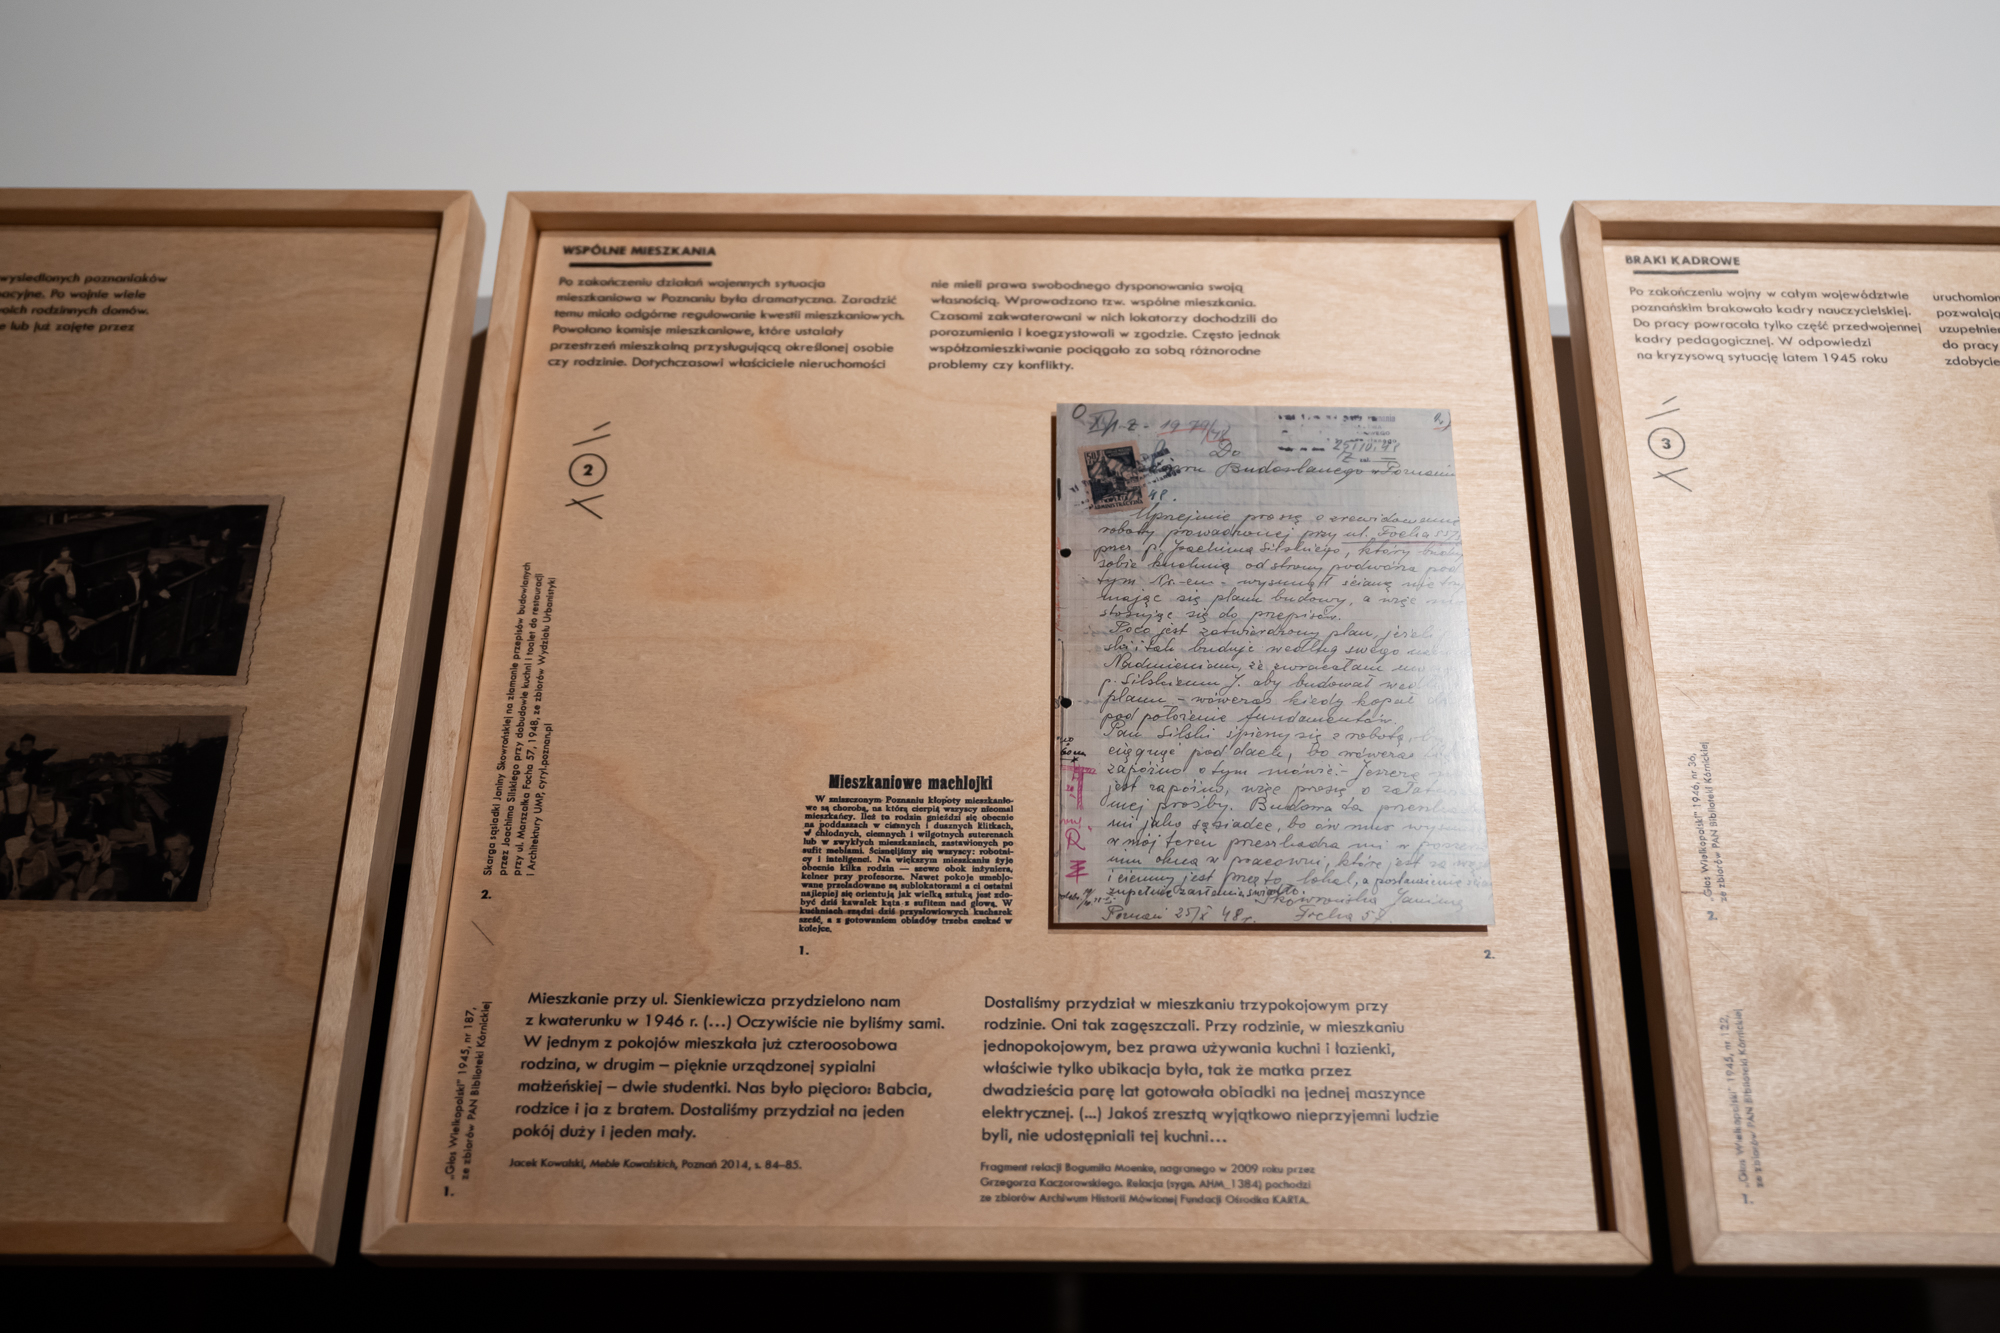 wysiedlonych poznaniaków
Po wojnie wiele
rodzinnych domów.
lub już zajęte przez
WSPÓLNE MIESZKANIA
Po zakończeniu działań wojennych sytuacja
mieszkaniowa w Poznaniu była dramatyczna. Zaradzić
temu miało odgórne regulowanie kwestii mieszkaniowych.
Powołano komisje mieszkaniowe, które ustalały
przestrzeń mieszkalną przysługującą określonej osobie
czy rodzinie. Dotychczasowi właściciele nieruchomości
nie mieli prawa swobodnego dysponowania swoją
własnością. Wprowadzono tzw. wspólne mieszkania.
Czasami zakwaterowani w nich lokatorzy dochodzili do
porozumienia i koegzystowali w zgodzie. Często jednak
współzamieszkiwanie pociągało za sobą różnorodne
problemy czy konflikty.
2
Skarga sąsiadki Janiny Skowrońskiej na złamanie przepisów budowlanych
przez Joachima Silskiego przy dobudowie kuchni i toalet do restauracji
przy ul. Marszałka Focha 57, 1948, ze zbiorów Wydziału Urbanistyki
i Architektury UMP, cyryl.poznan.pl
2.
Mieszkaniowe machlojki
W zniszczonym Poznaniu kłopoty mieszkanio-
we są chorobą, na którą cierpią wszyscy nieomal
mieszkańcy. Ileż to rodzin gnieździ się obecnie
na poddaszach w ciasnych i dusznych klitkach,
w chłodnych, ciemnych i wilgotnych suterenach
lub w zwykłych mieszkaniach, zastawionych po
sufit meblami. Ścisnęliśmy się wszyscy: robotni-
cy i inteligenci. Na większym mieszkaniu żyje
obecnie kilka rodzin — szewc obok inżyniera,
kelner przy profesorze. Nawet pokoje umeblo-
wane przeładowane są sublokatorami a ci ostatni
najlepiej się orientują jak wielką sztuką jest zdo-
być dziś kawałek kąta z sufitem nad głową. W
kuchniach rządzi dziś przysłowiowych kucharek
sześć, a z gotowaniem obiadów trzeba czekać w
kolejce.
1.
Do
Budowlanego w Poznaniu
Uprzejmie proszę o
roboty prowadzonej przy ul. Focha 57
przez p. Joachima Silskiego, który
sobie kuchnię od strony podwórza pod
tym Nr-em - wysunął ścianę nie
mając się planu budowy, a więc nie
stosując się do przepisów.
Poco jest zatwierdzony plan, jeżeli
buduje według swego
Nadmieniam, że zwracałam
p. Silskiemu J. aby budował
planu - wówczas kiedy kopał
pod położenie fundamentów.
Pan Silski spieszy się z robotą,
pod dach, bo wówczas
zapóźno o tym mówić. - Jeszcze
jest zapóźno, więc proszę o
mej prośby. Budowa ta
mi jako sąsiadce, bo ów mur
w mój teren przeszkadza mi w
oknu w pracowni, które jest
i ciemny jest przeto lokal, a postawienie
zupełnie zasłania światło.
Skowrońska Janina
Poznań 25/X 48 r. Focha 58
2.
Mieszkanie przy ul. Sienkiewicza przydzielono nam
z kwaterunku w 1946 r. (…) Oczywiście nie byliśmy sami.
W jednym z pokojów mieszkała już czteroosobowa
rodzina, w drugim – pięknie urządzonej sypialni
małżeńskiej – dwie studentki. Nas było pięcioro: Babcia,
rodzice i ja z bratem. Dostaliśmy przydział na jeden
pokój duży i jeden mały.
Jacek Kowalski, Meble Kowalskich, Poznań 2014, s. 84–85.
Dostaliśmy przydział w mieszkaniu trzypokojowym przy
rodzinie. Oni tak zagęszczali. Przy rodzinie, w mieszkaniu
jednopokojowym, bez prawa używania kuchni i łazienki,
właściwie tylko ubikacja była, tak że matka przez
dwadzieścia parę lat gotowała obiadki na jednej maszynce
elektrycznej. (…) Jakoś zresztą wyjątkowo nieprzyjemni ludzie
byli, nie udostępniali tej kuchni…
Fragment relacji Bogumiła Moenke, nagranego w 2009 roku przez
Grzegorza Kaczorowskiego. Relacja (sygn. AHM_1384) pochodzi
ze zbiorów Archiwum Historii Mówionej Fundacji Ośrodka KARTA.
„Głos Wielkopolski" 1945, nr 187,
ze zbiorów PAN Biblioteki Kórnickiej
1.
BRAKI KADROWE
Po zakończeniu wojny w całym województwie
poznańskim brakowało kadry nauczycielskiej.
Do pracy powracała tylko część przedwojennej
kadry pedagogicznej. W odpowiedzi
na kryzysową sytuację latem 1945 roku
do pracy
3
„Głos Wielkopolski" 1946, nr 36,
ze zbiorów PAN Biblioteki Kórnickiej
2.
„Głos Wielkopolski" 1945, nr 122,
ze zbiorów PAN Biblioteki Kórnickiej
1.